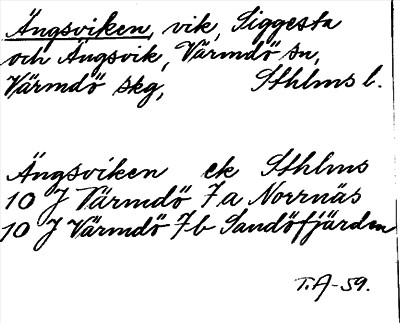 Ängsviken, vik, Siggesta
och Ängsvik, Värmdö sn,
Värmdö skg, Sthlms l.
Ängsviken ek Sthlms
10 J Värmdö 7a Norrnäs
10 J Värmdö 7b Sandöfjärden
T.A-59.